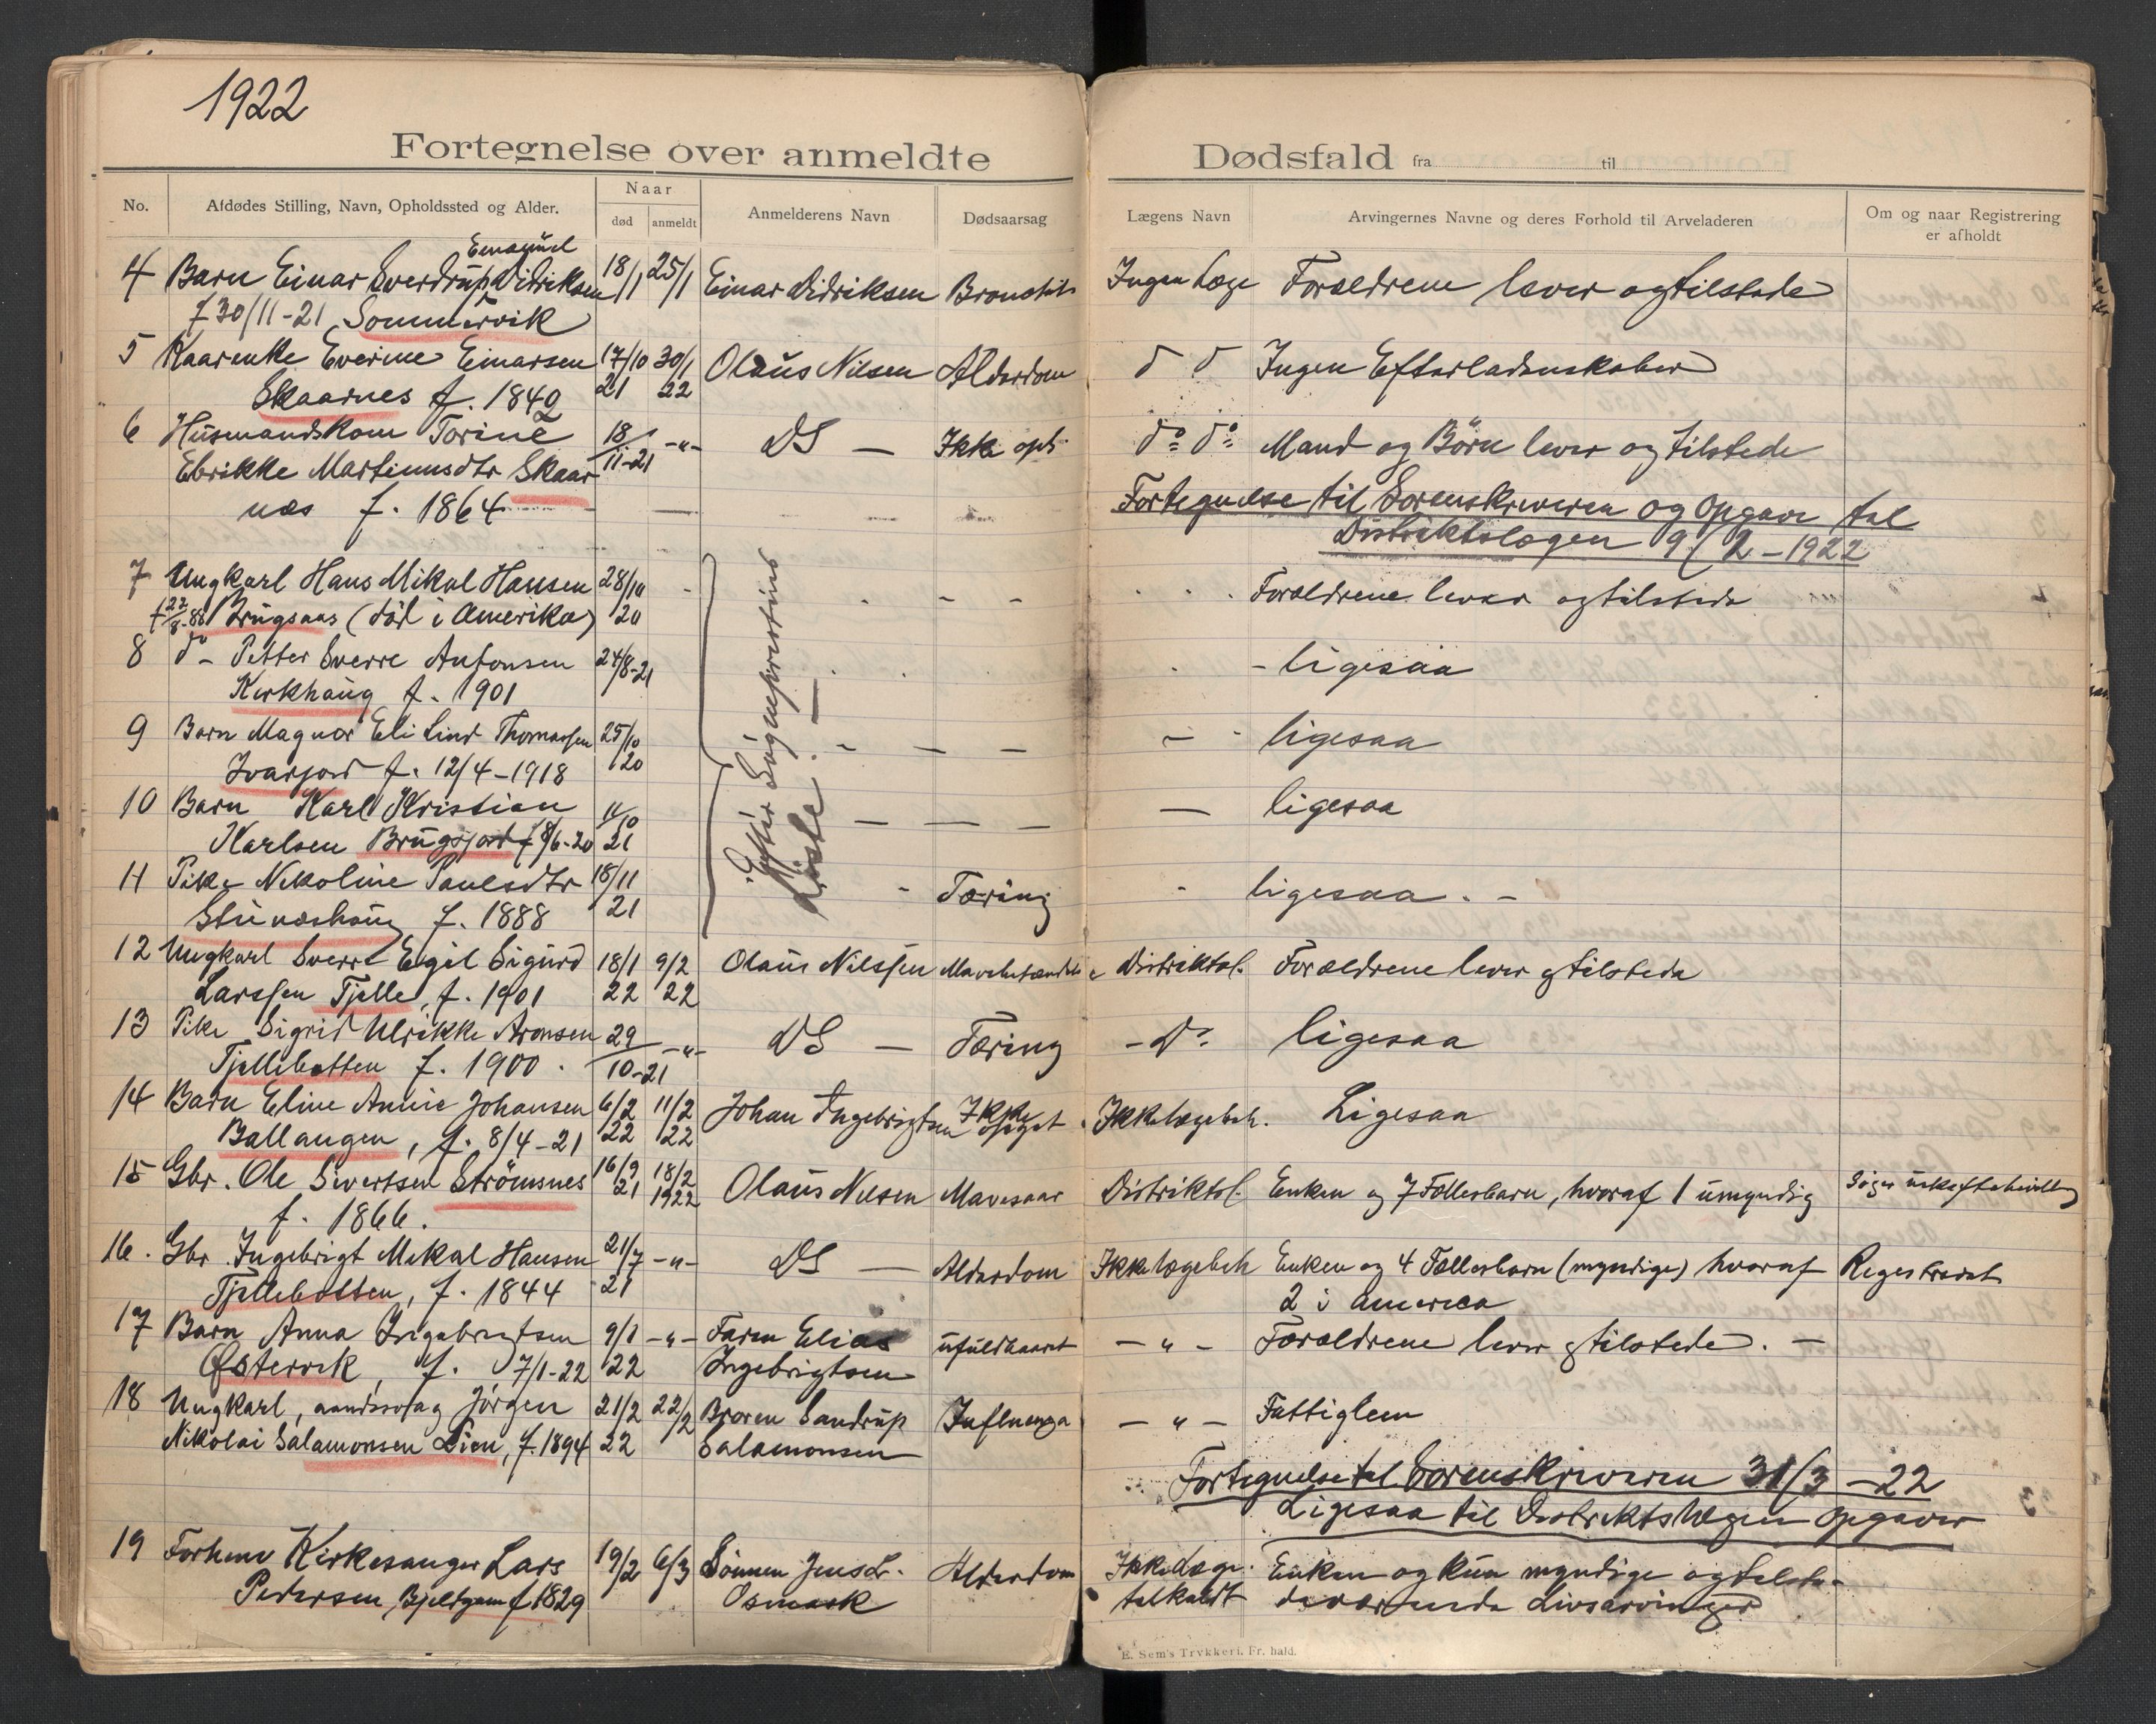 1922
Fortegnelse over anmeldte Dødsfald fra til
No. Afdødes Stilling, Navn, Opholdssted og Alder. Naar død anmeldt Anmelderens Navn Dødsaarsag Lægens Navn Arvingernes Navne og deres Forhold til Arveladeren Om og naar Registrering er afholdt
Emanuel
4 Barn Einar Sverdrup Didriksen 18/1 25/1 Einar Didriksen Bronchit Ingen Læge Forældrene lever og tilstede
f 30/11-21 Sommervik
5 Kaarenke Everine Einarsen 17/10 30/1 Olaus Nilsen Alderdom d d Ingen Efterladenskaber
Skaarnes f. 1849 21 22
6 Husmandskone Torine 18/ -"- DS — Ikke opl do do Mand og Børn lever og tilstede
Ebrikke Martinusdtr Skaar 11-21
næs f. 1864
Fortegnelse til Sorenskriveren og Opgave til
Distriktslægen 9/2-1922
7 Ungkarl Hans Mikal Hansen 28/10 - Forældrene lever og tilstede
f 27/8-88 Brugsaas (død i Amerika) 20
8 do - Petter Sverre Antonsen 24/8-21 - ligesaa
Kirkhaug f. 1901
9 Barn Magnor Eli Lind Thomassen 25/10 - ligesaa
Ivarjord f. 12/4-1918 20
10 Barn Karl Kristian 11/10 — ligesaa
Karlsen Brugsjord f 8/6-20 21
Efter Sogneprestens
Liste.
11 Pike Nikoline Paulsdtr 18/11 - Tæring - ligesaa. -
Stunæshaug f. 1888 21
12 Ungkarl Sverre Egil Sigurd 18/1 9/2 Olaus Nilssen Distriktsl. Forældrene lever og tilstede
Larssen Tjelle, f. 1901 22 22
13 Pike Sigrid Ulrikke Aronsen 29 -"- DS — Tæring - Do. ligesaa
Tjellebotten f. 1900. 10-21
14 Barn Eline Annie Johansen 6/2 11/2 Johan Ingebrigtsen Ikke Ikkelægebeh. Ligesaa
Ballangen, f. 8/4-21 22 22 opgivet
15 Gbr. Ole Sivertsen Strömsnes 16/9 18/2 Olaus Nilsen Mavesaar Distriktsl. Enken og 7 Fællesbarn, hvoraf 1 umyndig
f. 1866. 21 1922
16. Gbr. Ingebrigt Mikal Hansen 21/7 -"- DS — Alderdom Ikkelægebeh Enken og 4 Fællesbarn (myndige) hvoraf Registreret
Tjellebotten, f. 1844 21 2 i America
17 Barn Anna Ingebrigtsen 9/1 -"- Faren Elias ufuldbaaret -"- Forældrene lever og tilstede. -
Østervik, f. 7/1-22 22 Ingebrigtsen
18 Ungkarl, aandssvag Jörgen 21/2 22/2 Broren Sandrup Influenza -"- Fattiglem
Nikolai Salamonsen Lien, f. 1894 22 Salamonsen
Fortegnelse til Sorenskriveren 31/3-22
Ligesaa til Distriktslægen Opgaver
19 Forhenv Kirkesanger Lars 19/2 6/3 Sönnen Jens L. Alderdom Ikke Læge Enken og kun myndige og tilste-
Pedersen, Bjeldgam f 1829 Osmark tilkaldt deværende Livsarvinger
E. Sem's Trykkeri, Fr. hald.